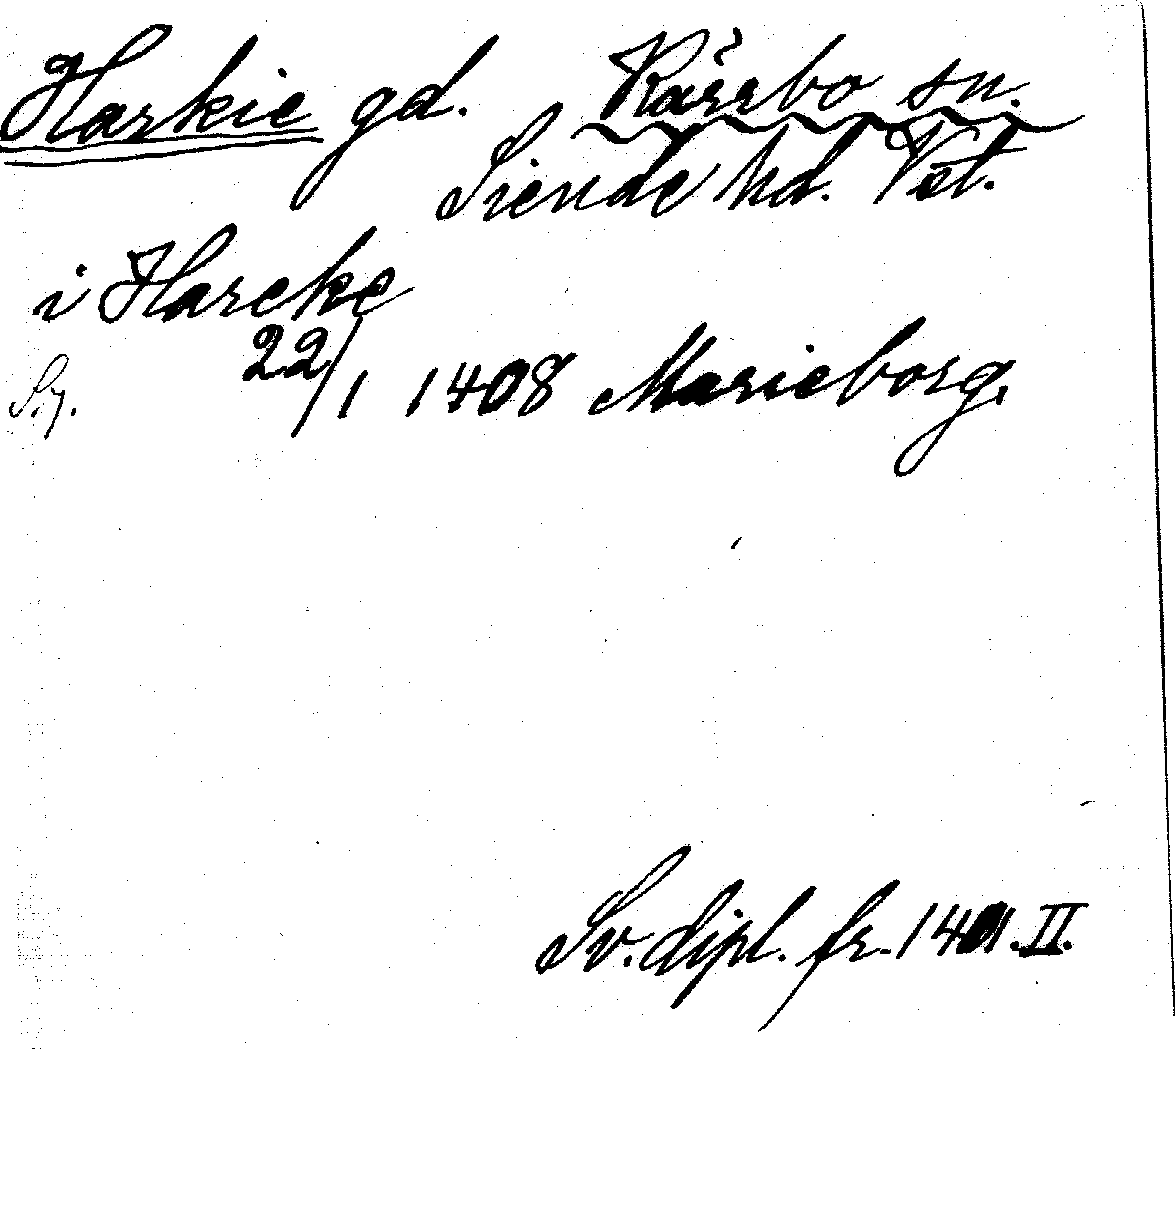 Harkie gd. Kärrbo sn.
Siende hd. Vstm.
i Harcke
22/1 1408 Marieborg.
Sv. dipl. fr. 1401. II.